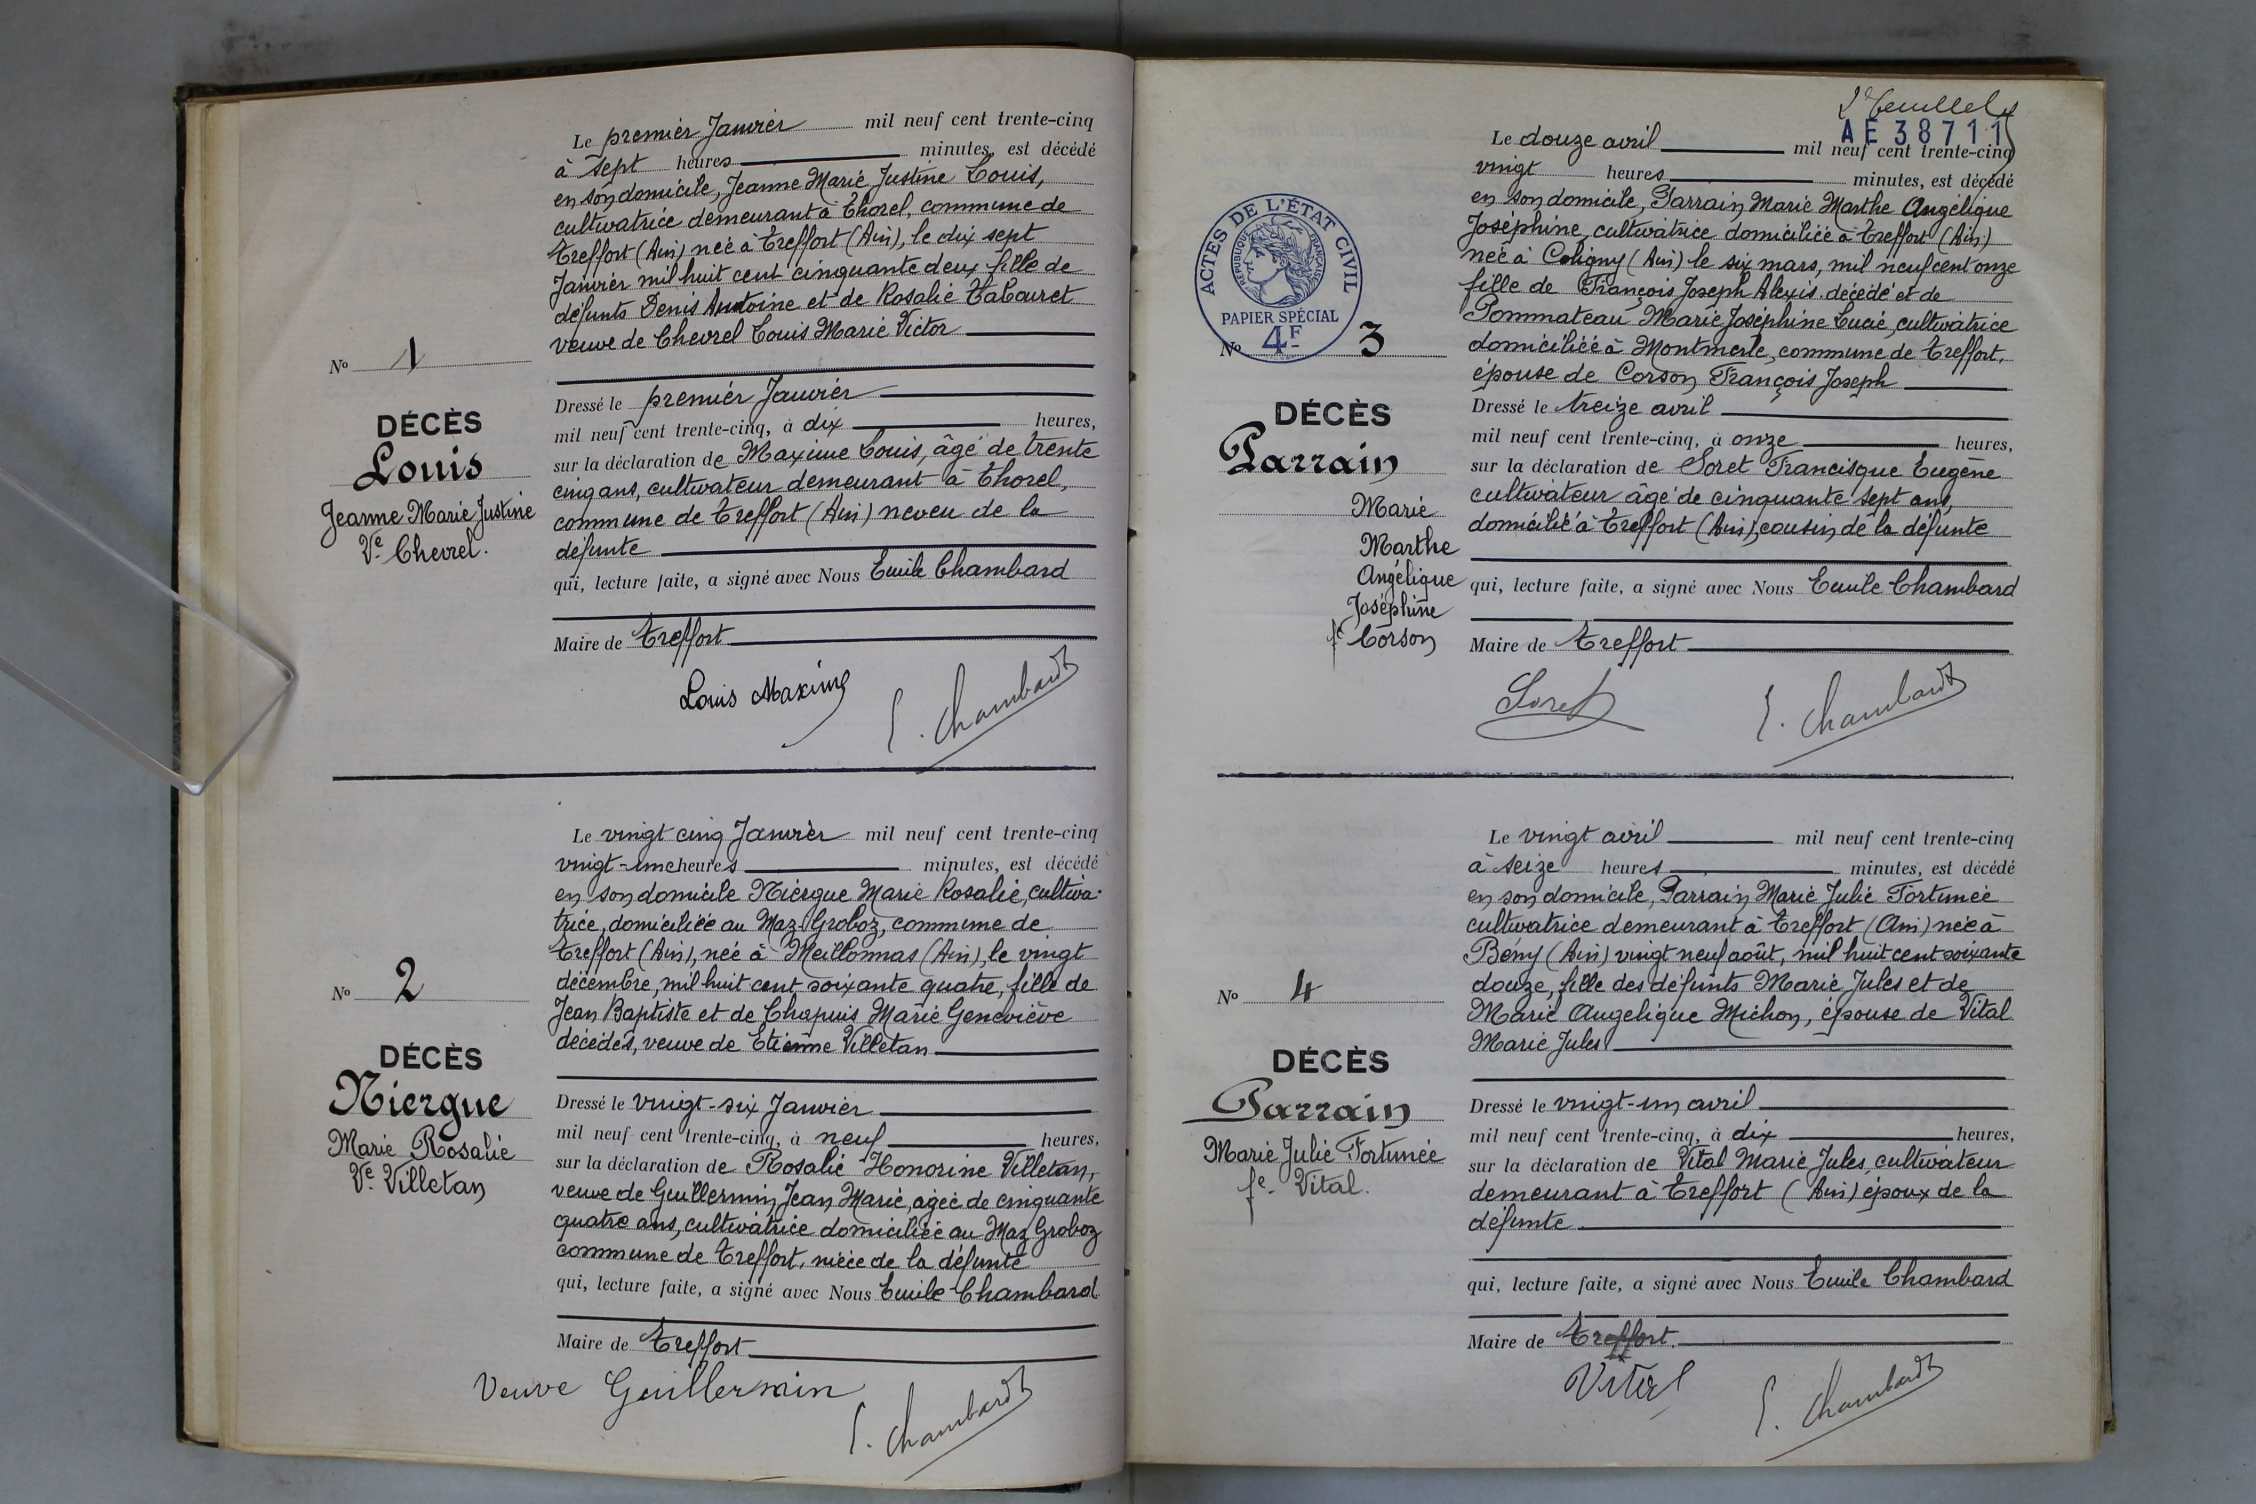 Le premier Janvier mil neuf cent trente-cinq
à sept heures minutes, est décédé
en son domicile, Jeanne Marie Justine Louis,
cultivatrice demeurant à Thorel, commune de
Treffort (Ain) née à Treffort (Ain), le dix sept
Janvier mil huit cent cinquante deux fille de
défunts Denis Antoine et de Rosalie Tabouret
veuve de Chevrel Louis Marie Victor
No 1
DÉCÈS
Louis
Jeanne Marie Justine
Ve Chevrel.
Dressé le premier Janvier
mil neuf cent trente-cinq, à dix heures,
sur la déclaration de Maxime Louis, âgé de trente
cinq ans, cultivateur demeurant à Thorel,
commune de Treffort (Ain) neveu de la
défunte
qui, lecture faite, a signé avec Nous Emile Chambard
Maire de Treffort
Louis Maxime E. Chambard
Le vingt cinq Janvier mil neuf cent trente-cinq
vingt-une heures minutes, est décédé
en son domicile Niergue Marie Rosalie, cultiva-
trice, domiciliée au Maz-Groboz, commune de
Treffort (Ain), née à Meillonnas (Ain), le vingt
décembre, mil huit cent soixante quatre, fille de
Jean Baptiste et de Chapuis Marie Geneviève
décédés, veuve de Etienne Villetan
No 2
DÉCÈS
Niergue
Marie Rosalie
Ve. Villetan
Dressé le vingt-six Janvier
mil neuf cent trente-cinq, à neuf heures,
sur la déclaration de Rosalie Honorine Villetan,
veuve de Guillermin Jean Marie, agée de cinquante
quatre ans, cultivatrice domiciliée au Maz Groboz
commune de Treffort, nièce de la défunte
qui, lecture faite, a signé avec Nous Emile Chambard
Maire de Treffort
Veuve Guillermin E. Chambard
2e feuillet
AE 38711
Le douze avril mil neuf cent trente-cinq
vingt heures minutes, est décédé
en son domicile, Parrain Marie Marthe Angélique
Joséphine, cultivatrice domiciliée à Treffort (Ain)
née à Coligny (Ain) le six mars, mil neuf cent onze
fille de François Joseph Alexis décédé et de
Pommateau Marie Joséphine Lucie, cultivatrice
domiciliée à Montmerle, commune de Treffort,
épouse de Corson François Joseph
ACTES DE L'ÉTAT CIVIL
RÉPUBLIQUE FRANÇAISE
PAPIER SPÉCIAL
4F
No 3
DÉCÈS
Parrain
Marie
Marthe
Angélique
Joséphine
fe Corson
Dressé le treize avril
mil neuf cent trente-cinq, à onze heures,
sur la déclaration de Soret Francisque Eugène
cultivateur âgé de cinquante sept ans,
domicilié à Treffort (Ain), cousin de la défunte
qui, lecture faite, a signé avec Nous Emile Chambard
Maire de Treffort
Soret E. Chambard
Le vingt avril mil neuf cent trente-cinq
à seize heures minutes, est décédé
en son domicile, Parrain Marie Julie Fortunée
cultivatrice demeurant à Treffort (Ain) née à
Bény (Ain) vingt neuf août, mil huit cent soixante
douze, fille des défunts Marie Jules et de
Marie Angelique Michon, épouse de Vital
Marie Jules
No 4
DÉCÈS
Parrain
Marie Julie Fortunée
fe. Vital.
Dressé le vingt-un avril
mil neuf cent trente-cinq, à dix heures,
sur la déclaration de Vital Marie Jules, cultivateur
demeurant à Treffort (Ain) époux de la
défunte
qui, lecture faite, a signé avec Nous Emile Chambard
Maire de Treffort.
Vital E. Chambard